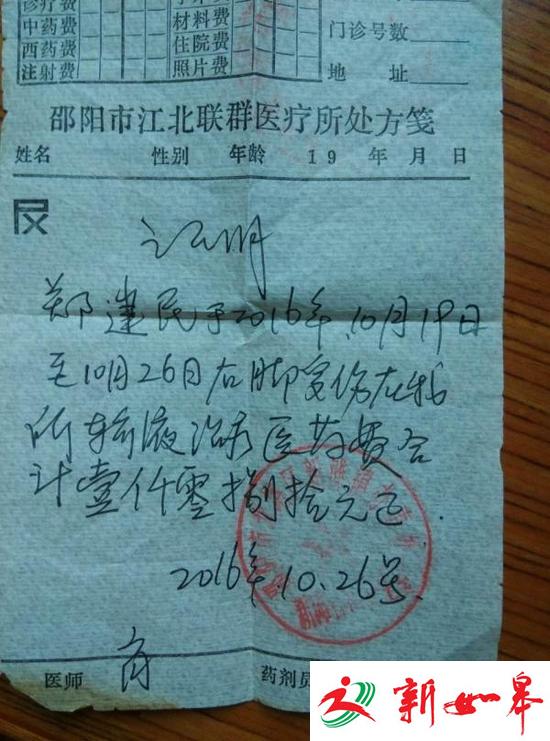 诊疗费
中药费 材料费 门诊号数
西药费 住院费
注射费 照片费 地 址
邵阳市江北联群医疗所处方笺
姓名 性别 年龄 19 年 月 日
证明
郑建民于2016年10月19日
至10月26日右脚受伤在我
所输液治疗医药费合
计壹仟零捌拾元正.
2016年.10.26号.
医师 药剂员
新如皋